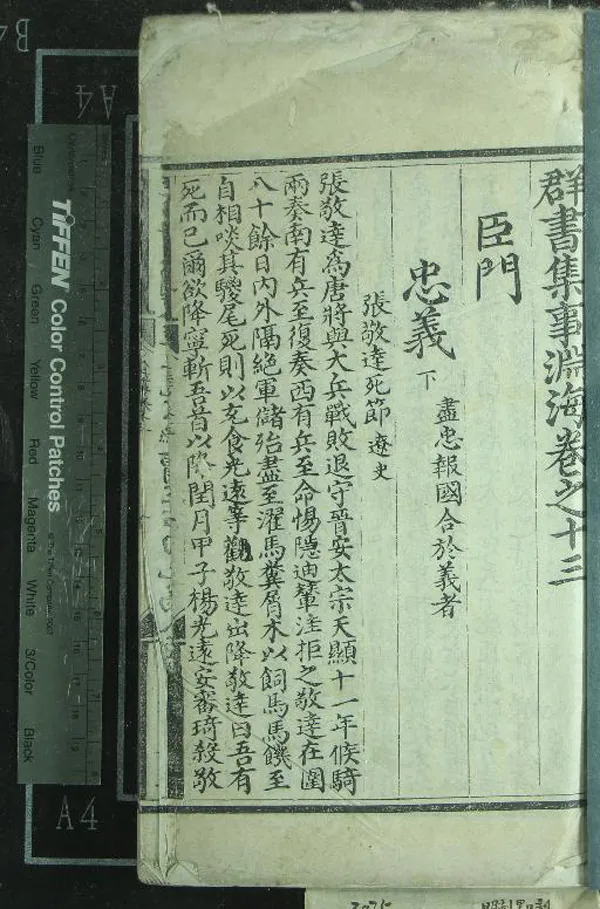 群書集事淵海卷之十三
臣門
忠義 下 盡忠報國合於義者
張敬達死節 遼史
張敬達為唐將與大兵戰敗退守晉安太宗天顯十一年候騎
兩奏南有兵至復奏西有兵至命惕隱迪輦洼拒之敬達在圍
八十餘日內外隔絕軍儲殆盡至濯馬糞屑木以飼馬馬饑至
自相啖其騣尾死則以充食光遠等觀敬達出降敬達曰吾有
死而已爾欲降寧斬吾首以降閏月甲子楊光遠安審琦殺敬
B4
A4
A4
TIFFEN Color Control Patches
© The Tiffen Company, 2007
Centimetres
Blue Cyan Green Yellow Red Magenta White 3/Color Black